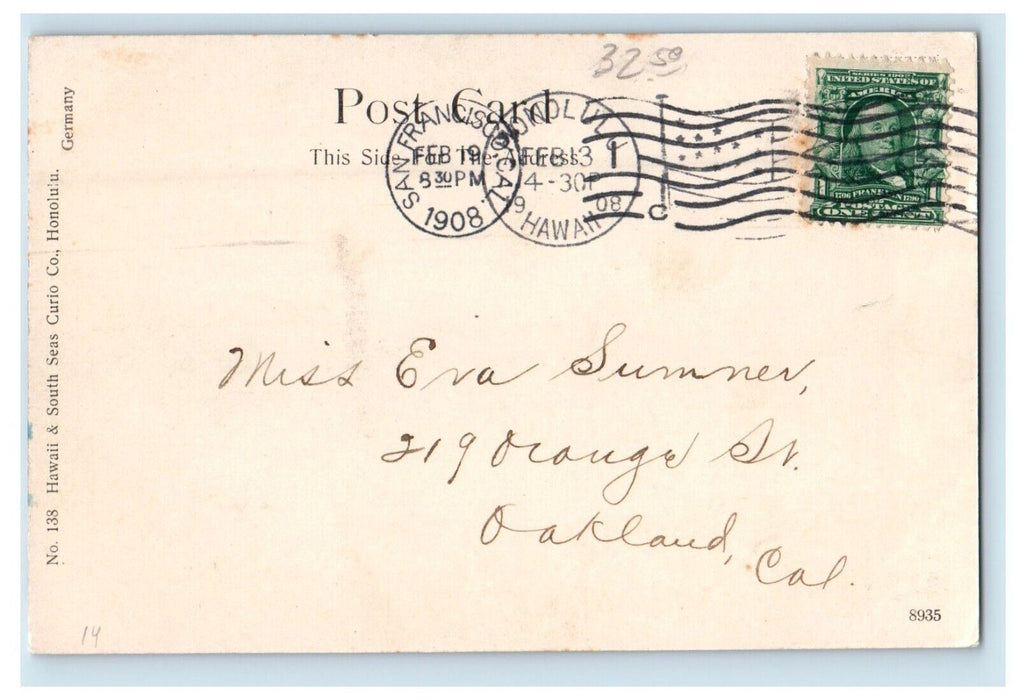 32.50
Post Card
This Side For The Address
SAN FRANCISCO, CAL.
FEB 19
8 30 PM
1908
HONOLULU
FEB 13
4-30P
1908
HAWAII
1
C
SERIES 1902
UNITED STATES OF
AMERICA
1706 FRANKLIN 1790
POSTAGE
ONE CENT
No. 138 Hawaii & South Seas Curio Co., Honolulu.
Germany
Miss Eva Sumner,
219 Orange St.
Oakland,
Cal.
8935
14